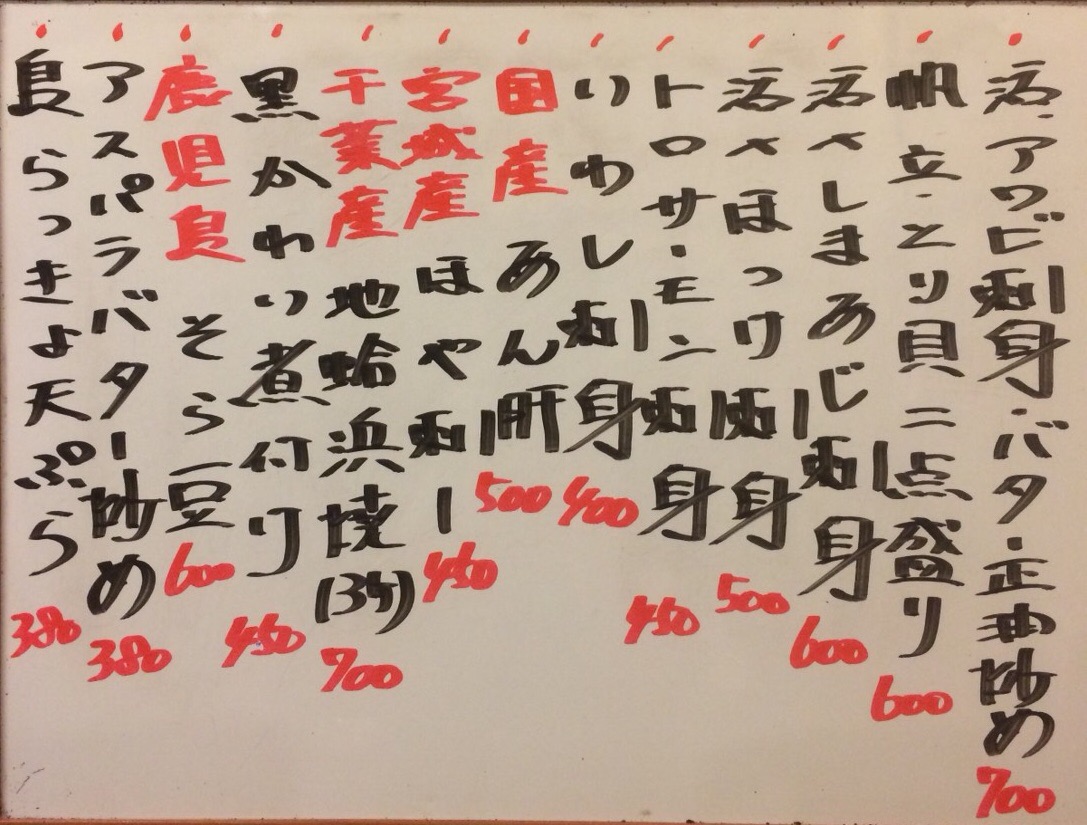 活アワビ刺身・バター正油炒め 700
帆立・とり貝二点盛り 600
活〆しまあじ刺身 600
活〆ほっけ刺身 500
トロサーモン刺身 450
いわし刺身 400
国産 あん肝 500
宮城産 ほや刺し 450
千葉産 地蛤浜焼(3ヶ) 700
黒かわり煮付け 450
鹿児島 そら豆 600
アスパラバター炒め 380
島らっきょ天ぷら 380